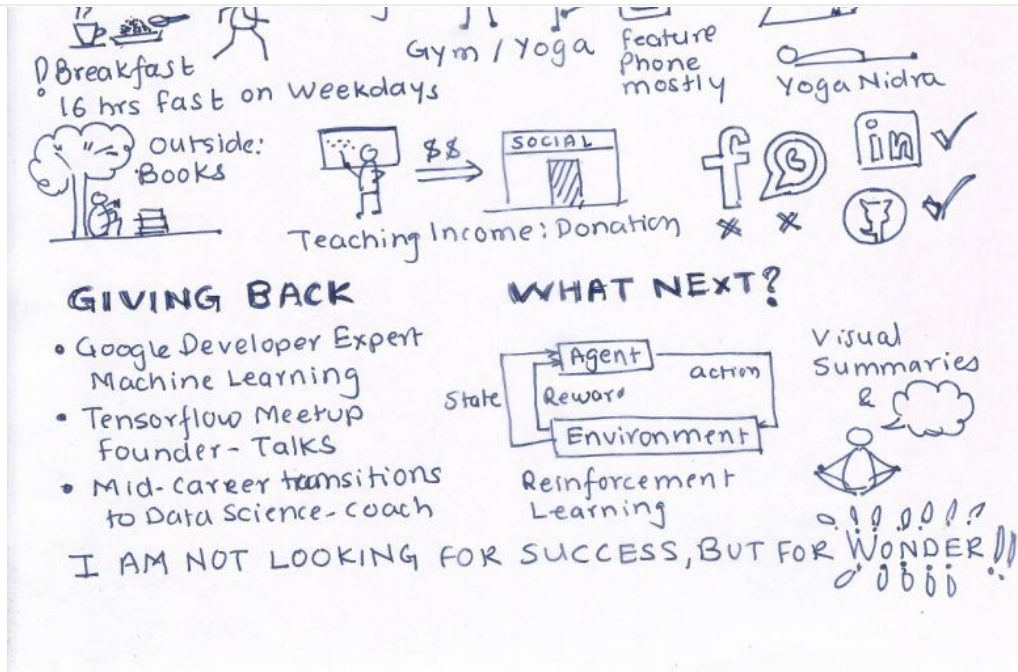 !Breakfast
16 hrs fast on Weekdays
Gym / Yoga
feature
Phone
mostly
Yoga Nidra
outside:
Books
$$
SOCIAL
Teaching Income: Donation
in
GIVING BACK
• Google Developer Expert
Machine Learning
• Tensorflow Meetup
Founder - Talks
• Mid-career transitions
to Data Science-coach
WHAT NEXT?
Agent
action
State
Reward
Environment
Reinforcement
Learning
Visual
Summaries
&
I AM NOT LOOKING FOR SUCCESS, BUT FOR WONDER!!